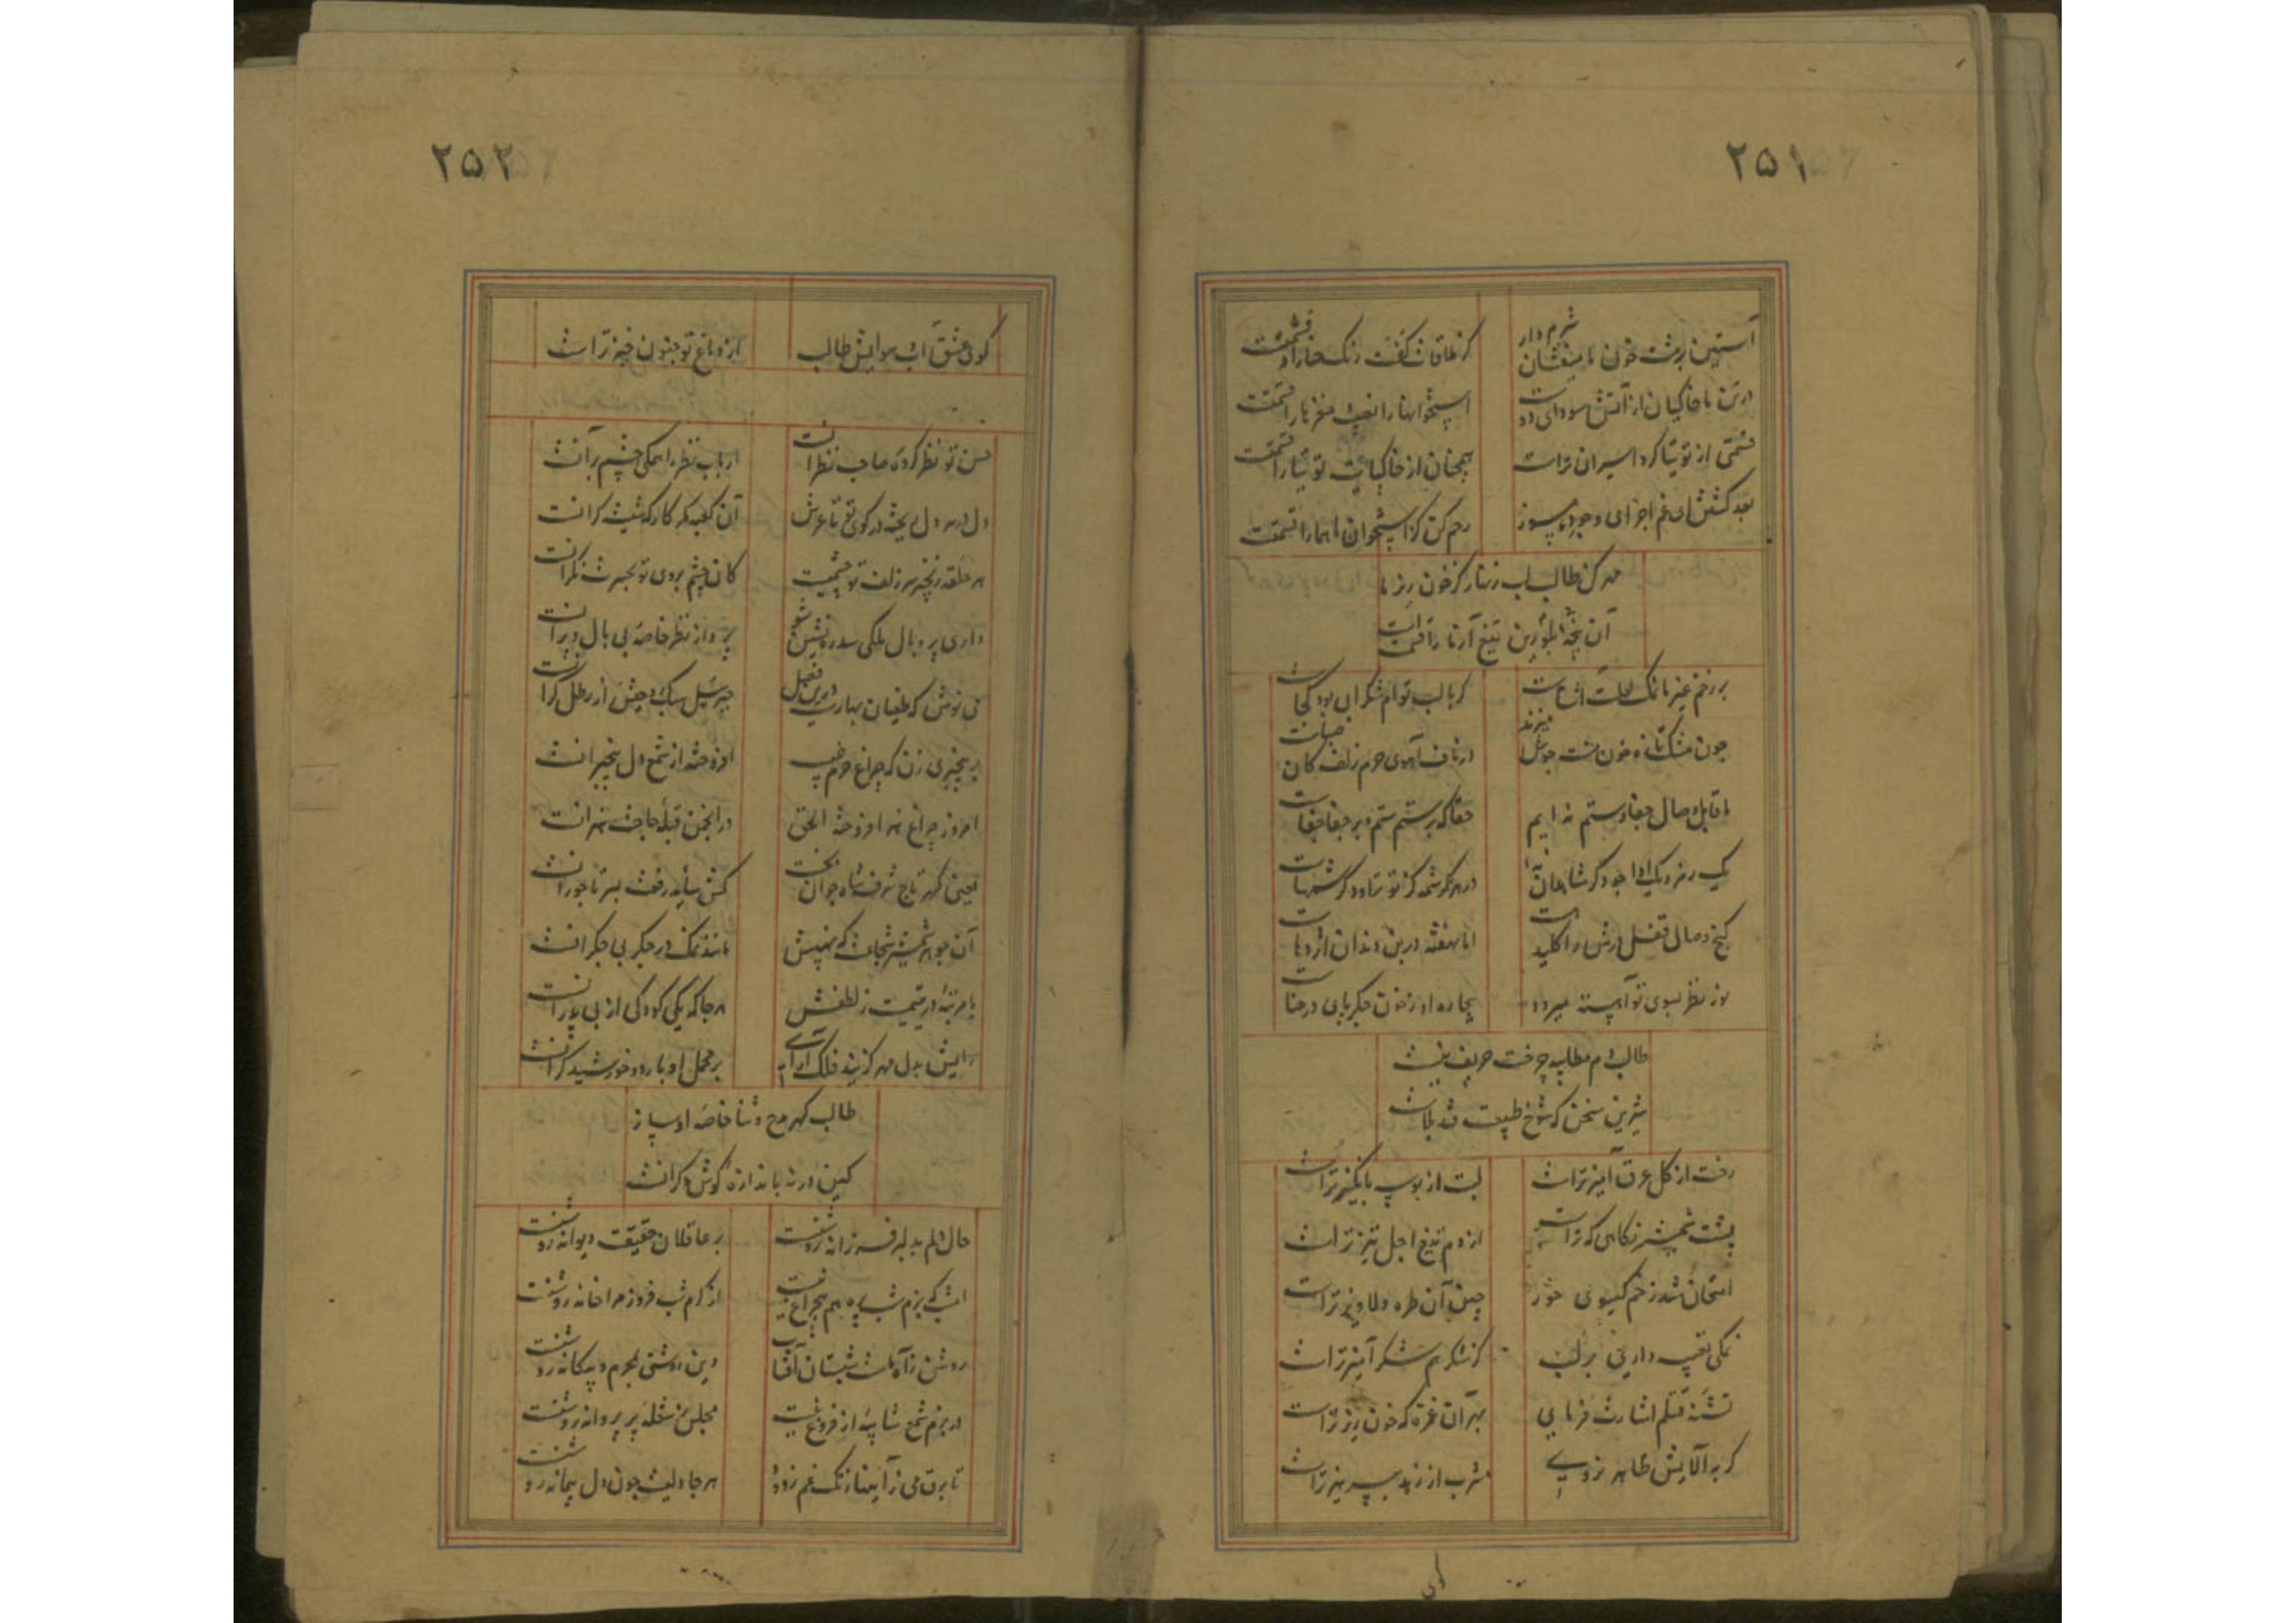 ۲۵۱
آستین بر پشت خون ما میفشان شرم دار کز طاقات کفت رنگ حنا را قسمتست
در تن ما خاکیان از آتش سودای دوست استخوانها را نصیب مغزها را قسمتست
قسمتی از توتیا کرد اسیران تراست همچنان از خاکپایت توتیا را قسمتست
بعد کشتن ای غم اجزای وجودم بسوز رحم کن کز استخوان ما هما را قسمتست
مهر کن طالب لب زنهار کز خون ریز ما
آن پنجه بلورین تیغ آزما را قسمتست
بر زخم غیر تا نمک لعلت آشناست کر با لب توام شکرابی بود بجاست
چون مشک تازه خون میزند از ناف آهوی حرم زلف کان
ما قابل وصال جفا و ستم نه ایم حقا که بر ستم ستم و بر جفا جفاست
یک رمز و یک ادا در هر کرشمه کز تو تراود کرشمهاست
گنج وصال قفل درش را کلید است اما نهفته در بن دندان اژدهاست
نور نظر بسوی تو آهسته میرود بیچاره او ز خون جگر پای در حناست
طالب دم مطایبه چفت حریف نیست
شیرین سخن که شوخ طبیعت فتد بلاست
رخت از گل عرق آمیزتر است لبت از بوسه بانگیزتر است
پشت شمشیر نگاهی که تراست از دم تیغ اجل تیزتر است
امتحان شد ز خم گیسوی حور چین آن طره دلاویزتر است
نمکی تعبیه داری بر لب کز شکر هم شکر آمیزتر است
تشنه قتلم اشارت فرمای بهر آن غمزه که خون ریزتر است
کر به آلایش ظاهر نروی مشرب از زهد بپرهیزتر است
کوی
۲۵۲
کوی عشق است طالب از دماغ تو جنون خیزتر است
حسن تو نظر کرده صاحب نظرانست ارباب نظر را همگی چشم بر آنست
دل بر سر دل ریخته در کوی تو تا عرش آن کعبه مگر کارگه شیشه گرانست
هر حلقه زنجیر سر زلف تو چشمیست کان چشم بروی تو بحسرت نگرانست
داری پر و بال ملکی سدره نشین شو پرواز نظر خاصه بی بال و پرانست
می نوش که طغیان بهارست درین فصل جبریل سبک وحش از رطل گرانست
بر بیخبری زن که چراغ حرم غیب افروخته از شمع دل بیخبرانست
امروز چراغ هنر افروخته الحق در انجمن قبله صاحب هنرانست
یعنی گهر تاج شرف شاه جوان بخت کش سایه رفعت بسر تاجورانست
آن جوهر شمشیر شجاعت که نهیبش مانند نمک در جگر بی جگرانست
با مرتبه در یتیمست ز لطفش هر جا که یکی کودکی از بی پدرانست
رایش بدل مهر گزیند فلک آرای بر محمل او بار دو خورشید گرانست
طالب گهر مدح و ثنا خاصه او ساز
کین در نه باندازه گوش دگرانست
حال دلم به دلبر فرزانه روشنست بر عاقلان حقیقت دیوانه روشنست
امشب که بزم شب پره هم بیچراغ نیست از کرم شب فروز مرا خانه روشنست
روشن ز آه ماست شبستان آفتاب وین روشنی بمحرم و بیگانه روشنست
در بزم شمع شایبه از فروغ نیست مجلس ز شعله پر پروانه روشنست
تا برق می ز آینها زنگ غم زدود هر جا دلیست چون دل پیمانه روشنست